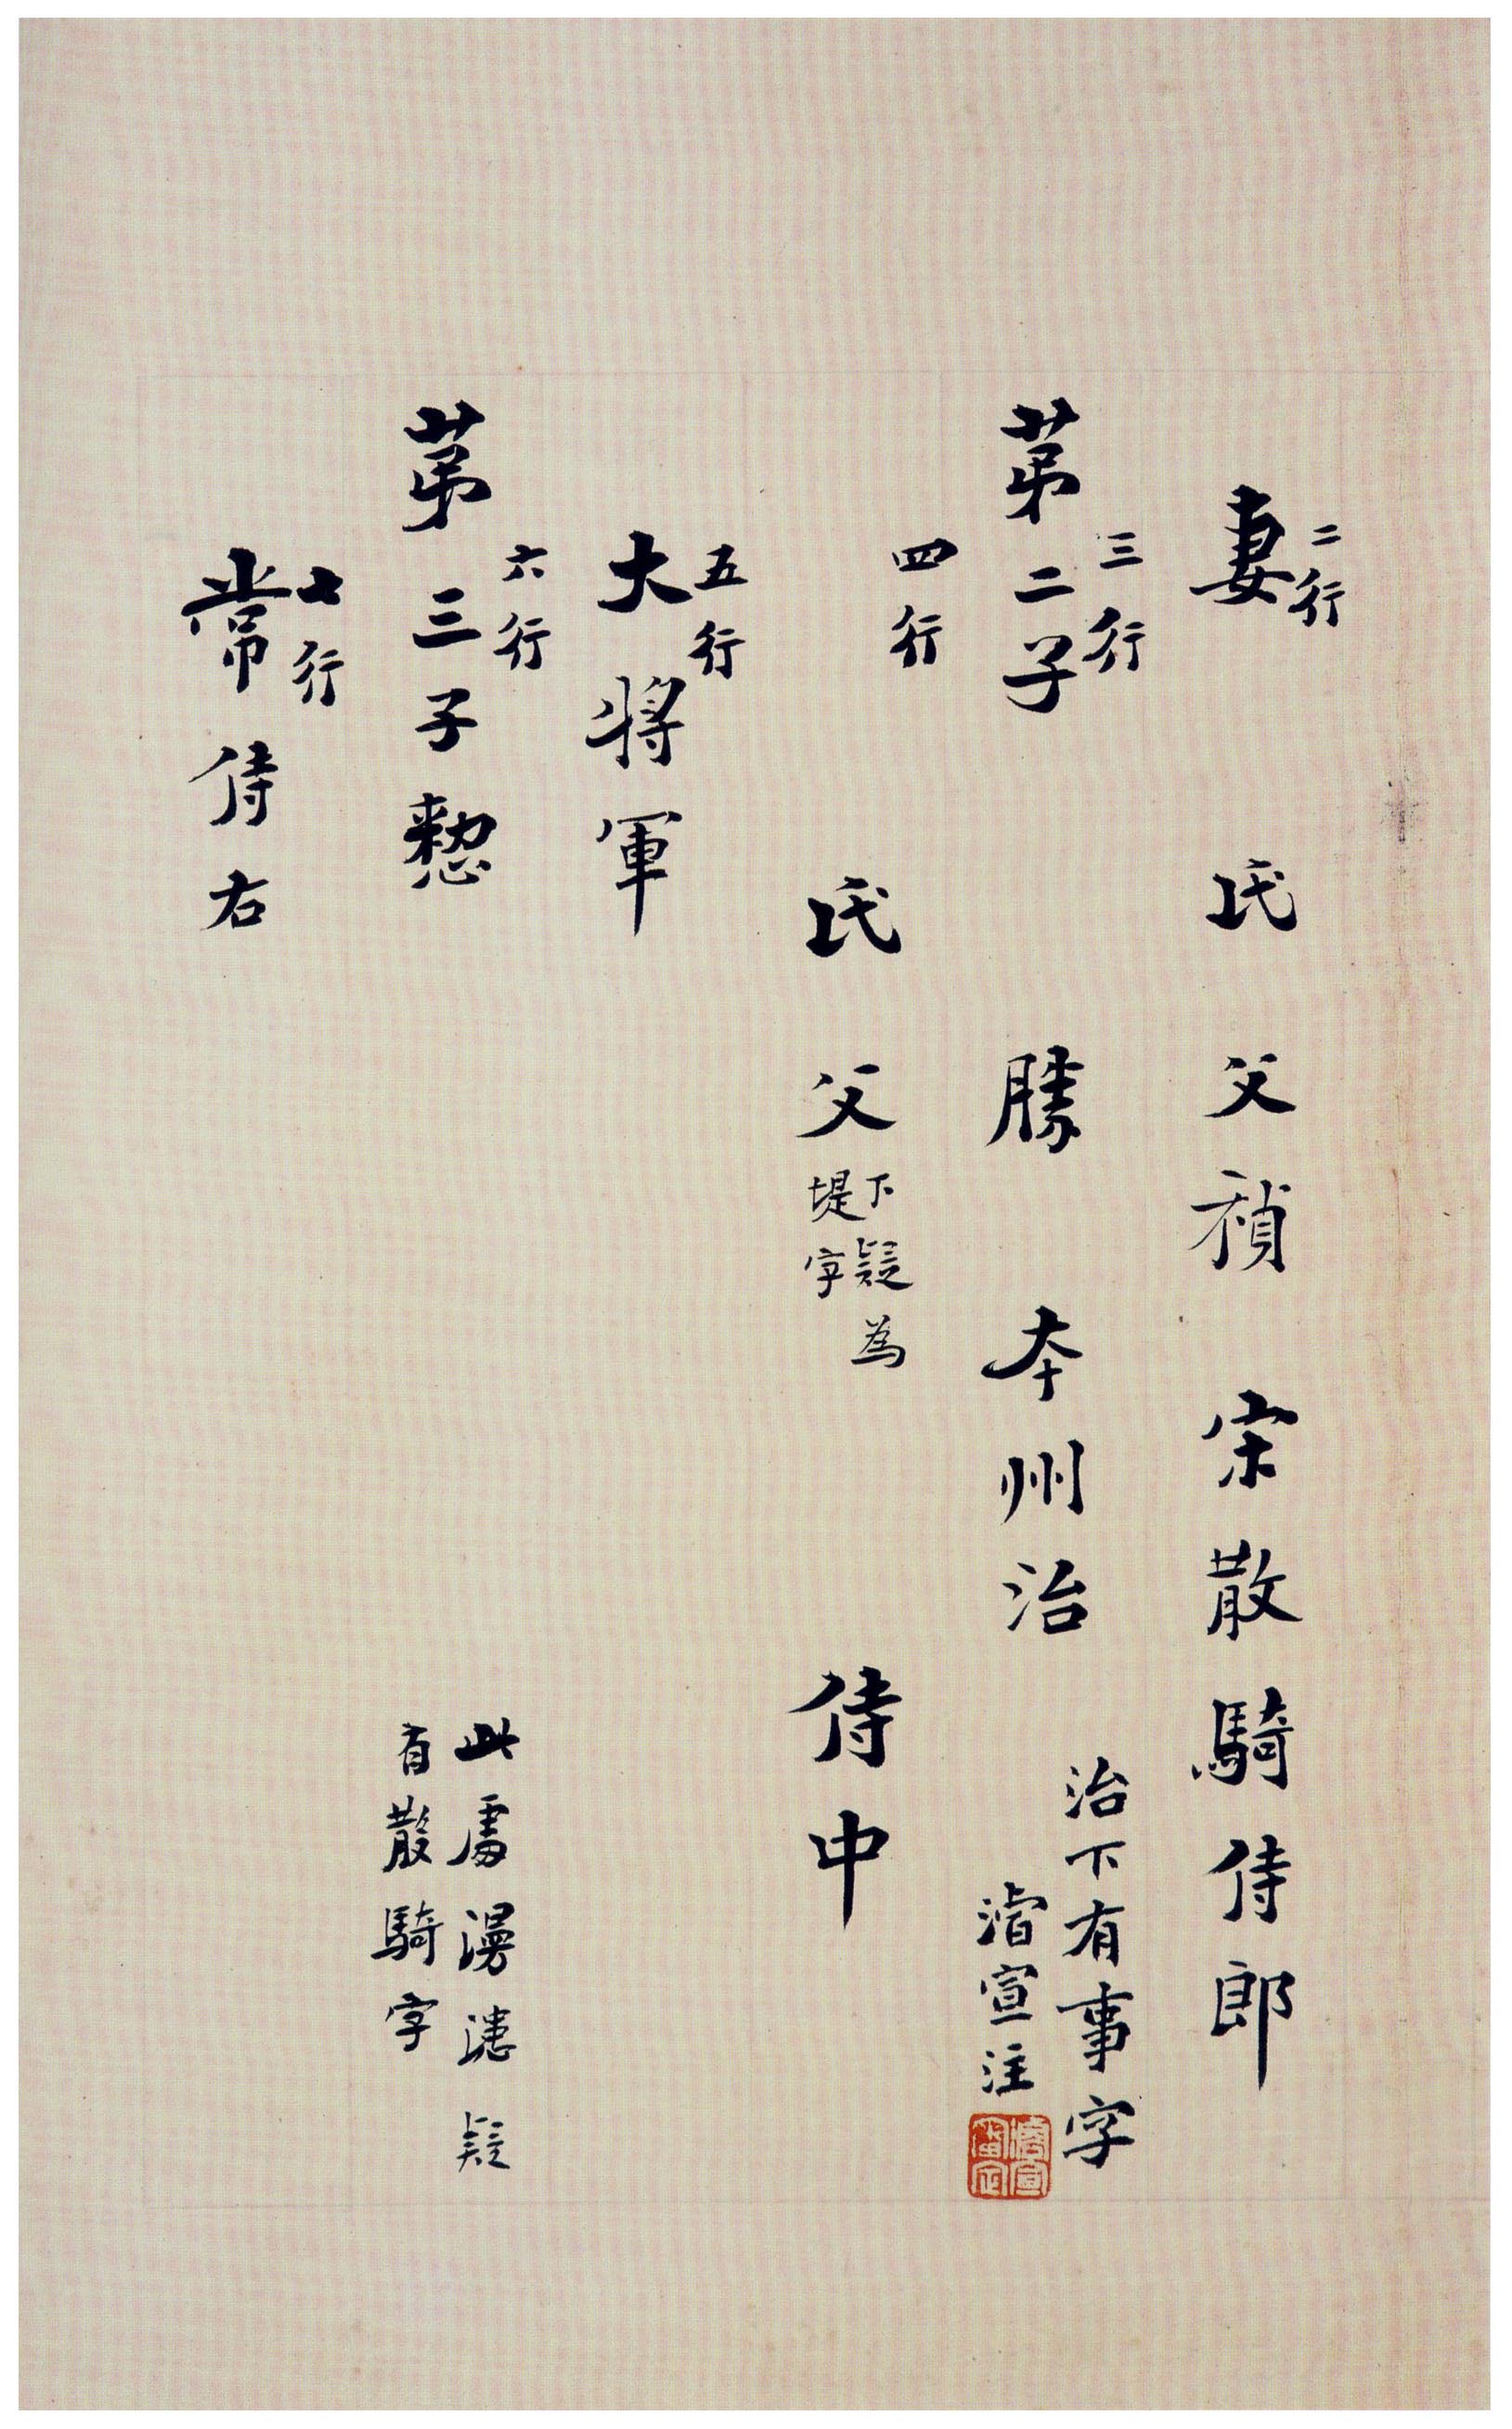 二行
妻 氏 父 禎 宋 散 騎 侍 郎
三行
苐 二 子 勝 本 州 治
治下有事字
濬宣注
四行
氏 父 下疑為
堤字
侍 中
五行
大 將 軍
六行
苐 三 子 憗
此處漫漶疑
有散騎字
七行
常 侍 右